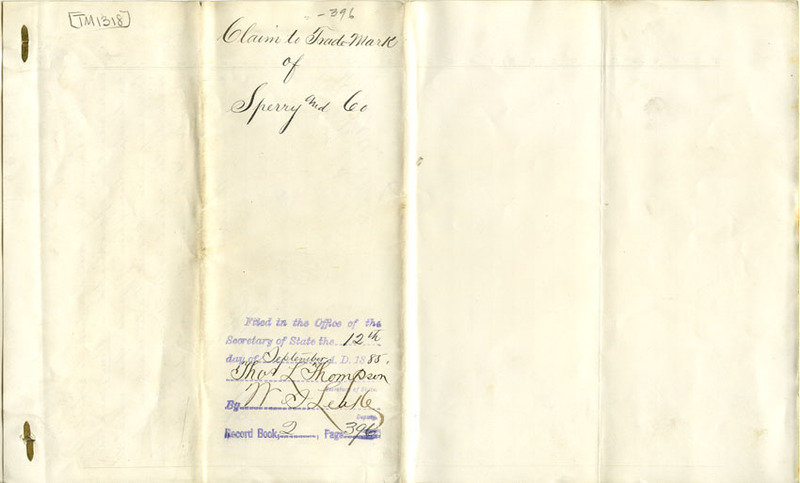 [TM1318]
-396
Claim to Trade Mark
of
Sperry and Co
Filed in the Office of the
Secretary of State the 12th
day of September A. D. 1885.
Thos L Thompson
Secretary of State.
By W. J. Leake
Deputy.
Record Book 2, Page 396